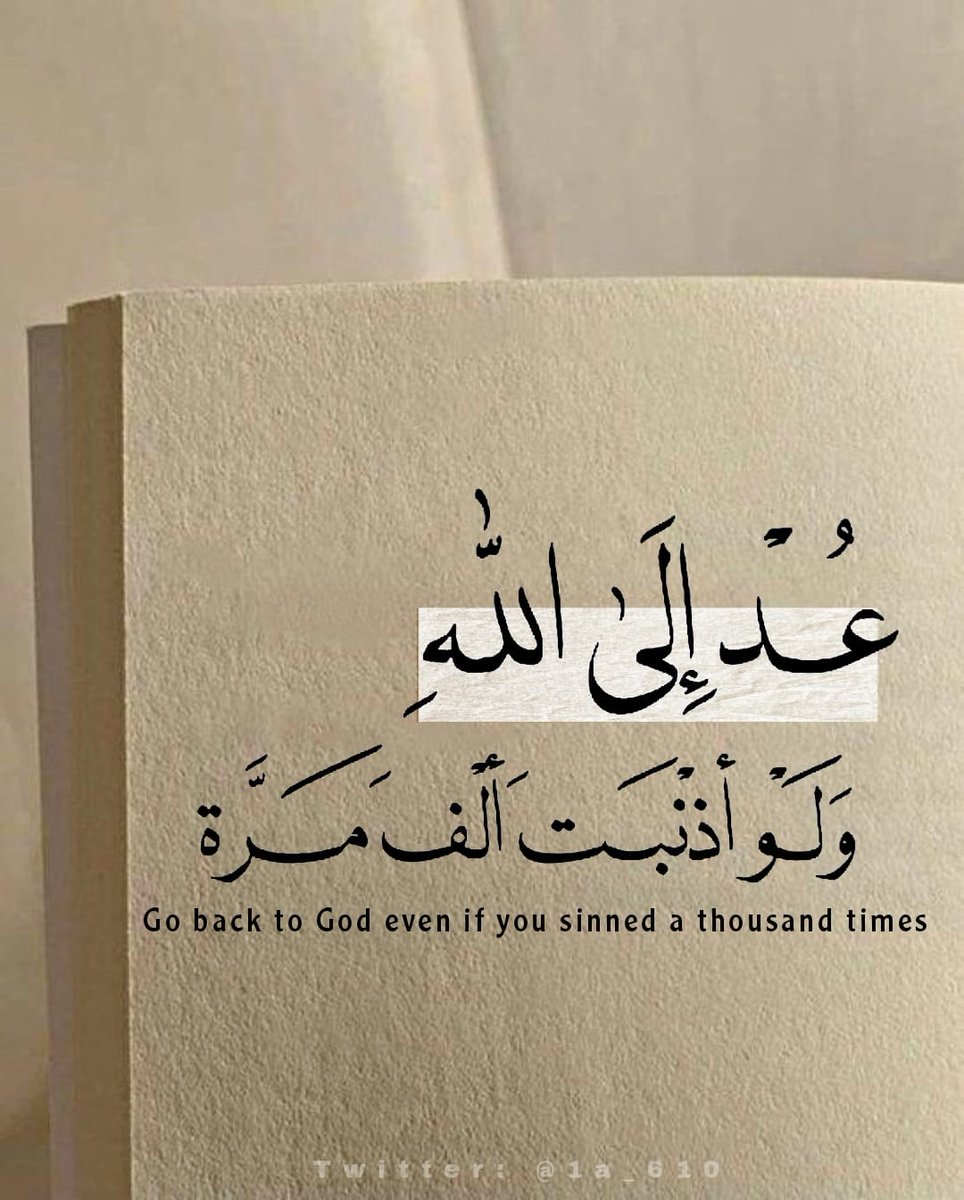 عُدْ إِلَىٰ اللّٰهِ
وَلَوْ أَذْنَبَت أَلْف مَرَّة
Go back to God even if you sinned a thousand times
Twitter: @1a_610